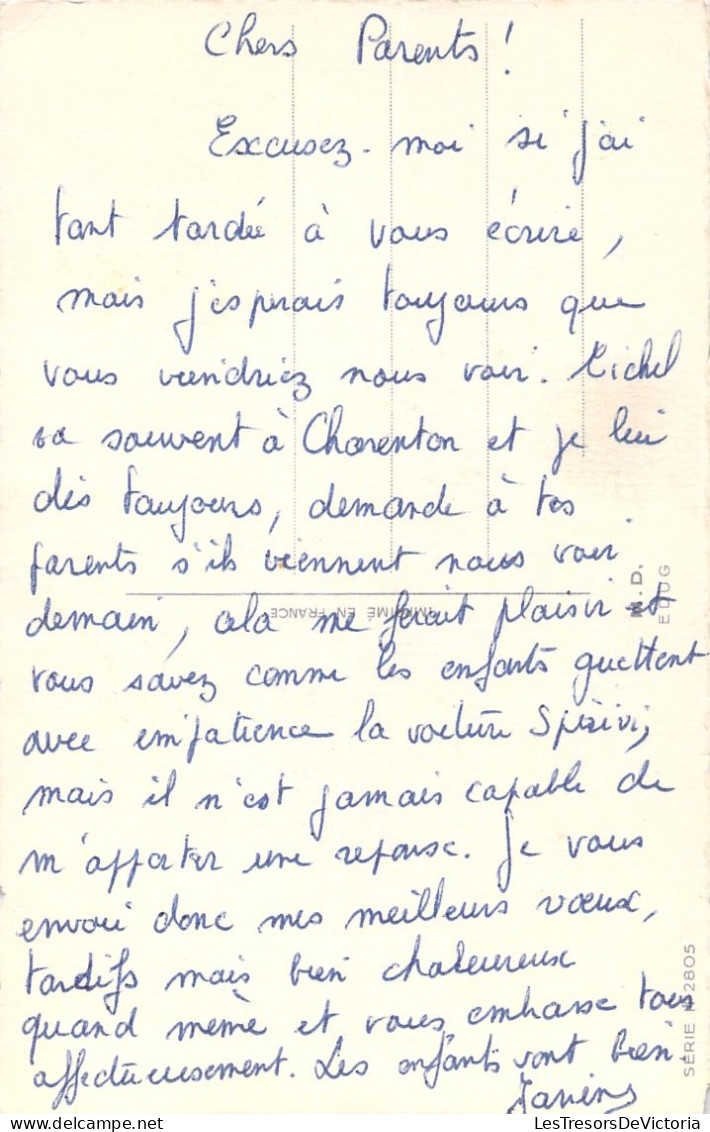 Chers Parents !
Excusez-moi si j'ai
tant tardée à vous écrire,
mais j'esperais toujours que
vous viendriez nous voir. Michel
va souvent à Charenton et je lui
dis toujours, demande à tes
parents s'ils viennent nous voir
demain, cela me ferait plaisir et
vous savez comme les enfants guettent
avec impatience la voiture
mais il n'est jamais capable de
m'apporter une reponse. Je vous
envoi donc mes meilleurs vœux,
tardifs mais bien chaleureux
quand même et vous embrasse tous
affectueusement. Les enfants vont bien
Janine
IMPRIMÉ EN FRANCE
M.D.
EDUG
SÉRIE N° 2805
LesTresorsDeVictoria